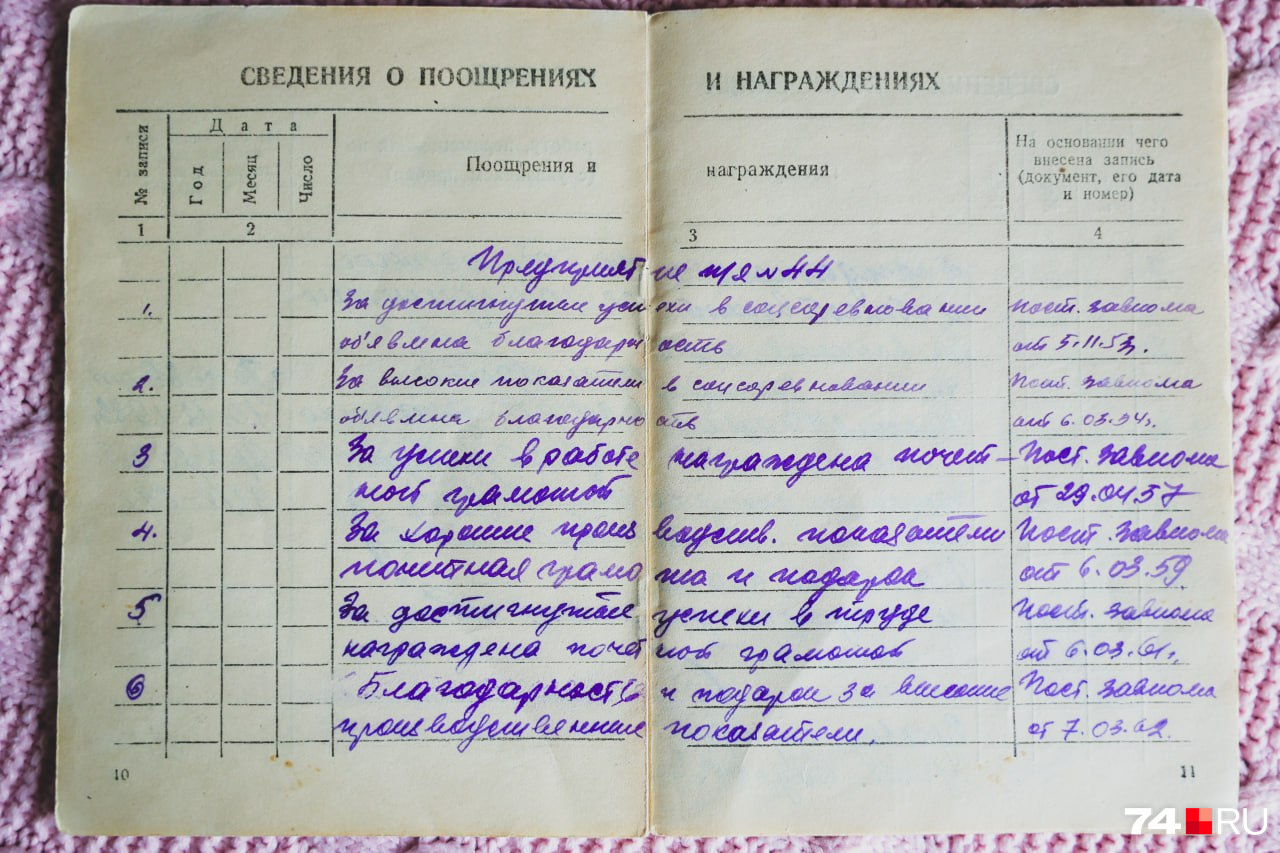 СВЕДЕНИЯ О ПООЩРЕНИЯХ И НАГРАЖДЕНИЯХ
№ записи
Дата
Год
Месяц
Число
Поощрения и награждения
На основании чего
внесена запись
(документ, его дата
и номер)
1 2 3 4
Предприятие п/я №44
1. За достигнутые успехи в соцсоревновании Пост. завкома
объявлена благодарность от 5.11.53г.
2. За высокие показатели в соцсоревновании Пост. завкома
объявлена благодарность от 6.03.54г.
3 За успехи в работе награждена почет- Пост. завкома
ной грамотой от 29.04.57
4. За хорошие производств. показатели Пост. завкома
почетная грамота и подарок от 6.03.59
5 За достигнутые успехи в труде Пост. завкома
награждена почетной грамотой от 6.03.61г.
6 Благодарность и подарок за высокие Пост. завкома
производственные показатели. от 7.03.62.
10 11
74.RU